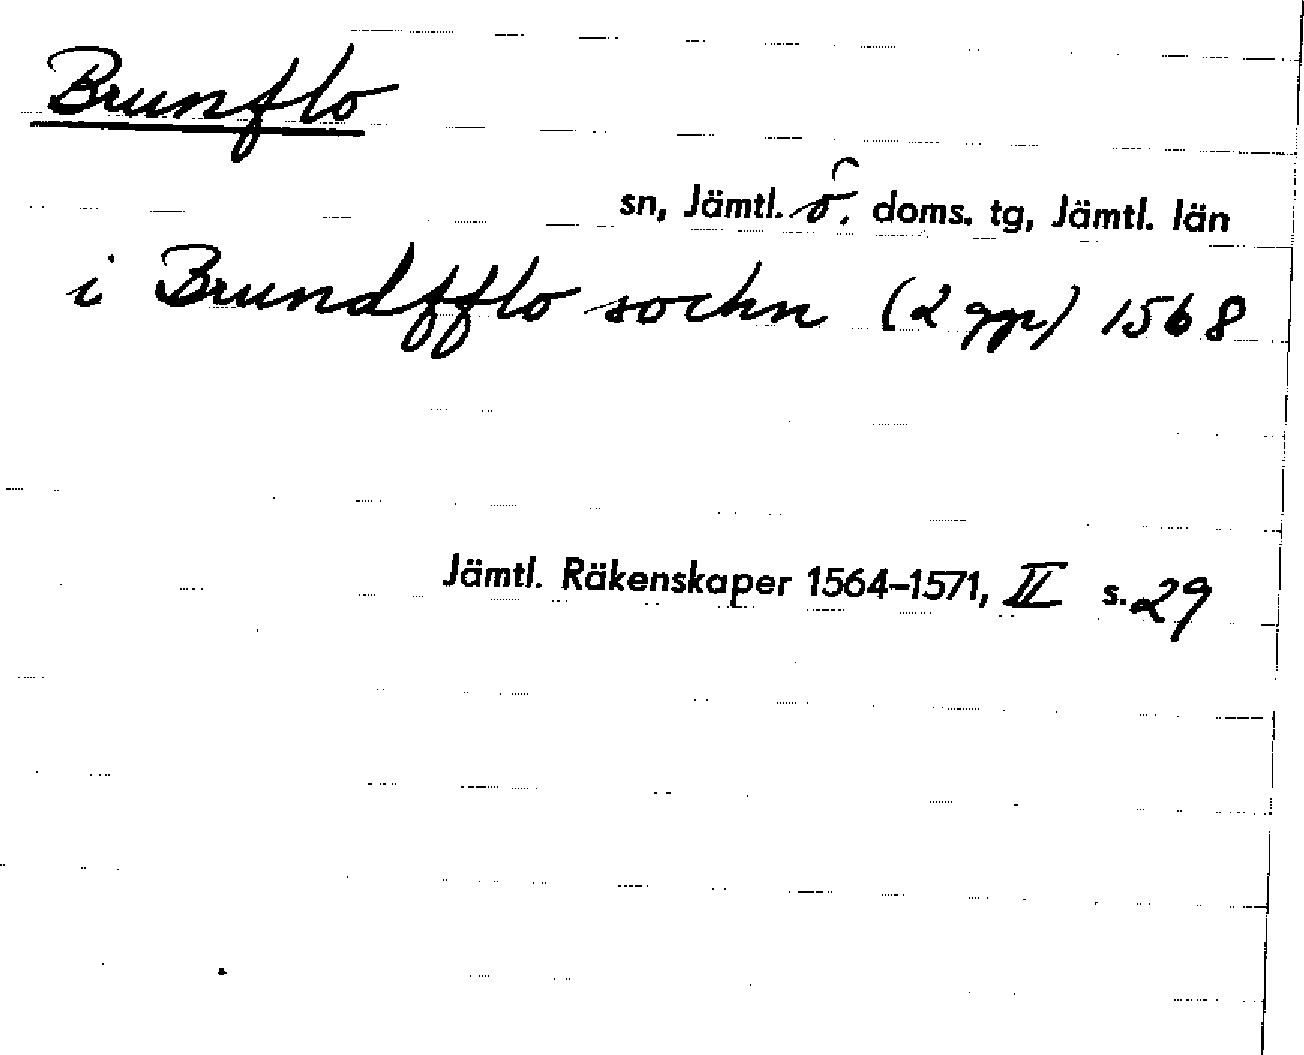 Brunflo
sn, Jämtl. ö. doms. tg, Jämtl. län
i Brundfflo sochn (2 ggr) 1568
Jämtl. Räkenskaper 1564–1571, II s. 29